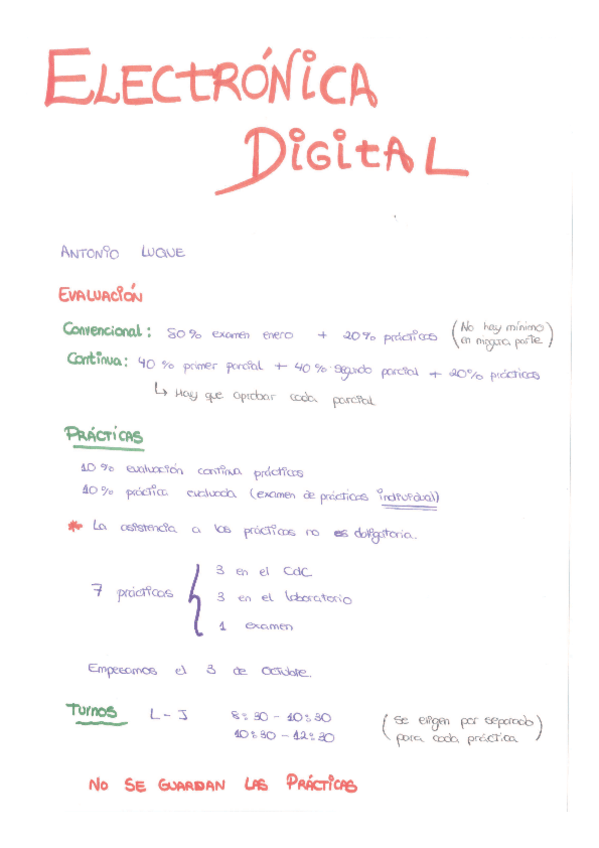 ELECTRÓNICA
DIGITAL
ANTONIO LUQUE
EVALUACIÓN
Convencional: 80% examen enero + 20% prácticas (No hay mínimo en ninguna parte)
Continua: 40 % primer parcial + 40% segundo parcial + 20% prácticas
↳ Hay que aprobar cada parcial
PRÁCTICAS
10 % evaluación continua prácticas
10% práctica evaluada (examen de prácticas individual)
* La asistencia a las prácticas no es obligatoria.
7 prácticas { 3 en el CdC
3 en el laboratorio
1 examen
Empezamos el 3 de octubre.
Turnos L-J 8:30 - 10:30 (se eligen por separado
10:30 - 12:30 para cada práctica)
NO SE GUARDAN LAS PRÁCTICAS